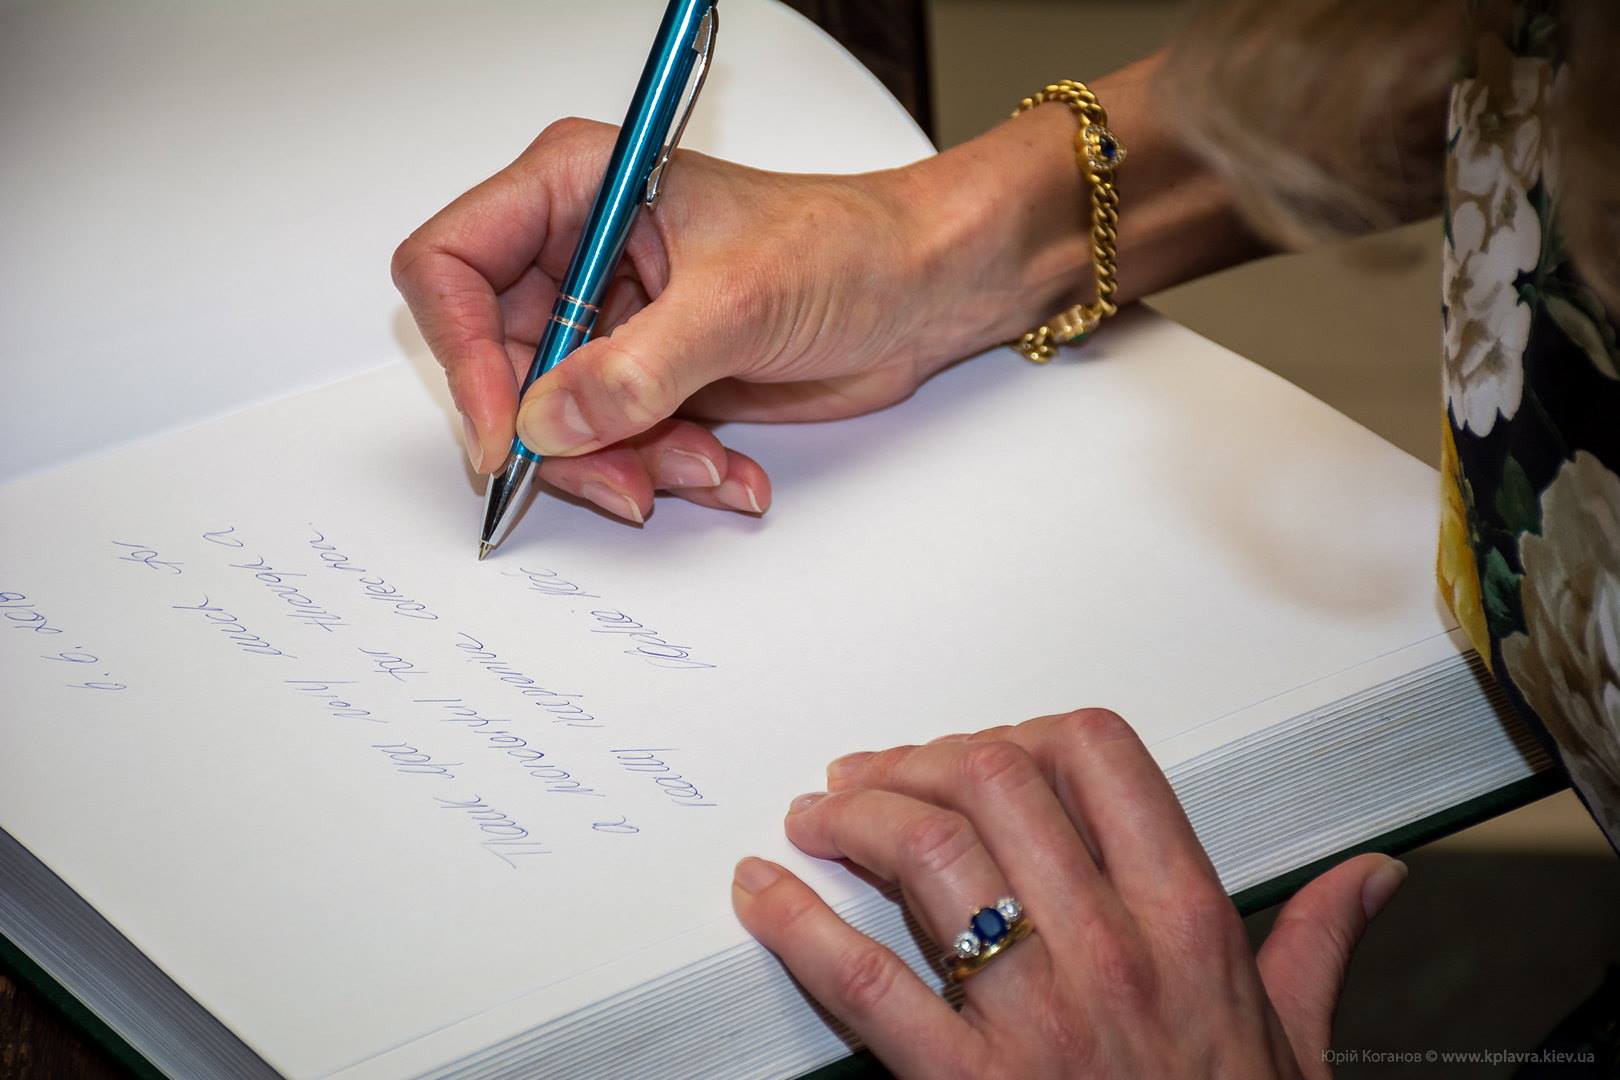 6. 6. 2018
Thank you very much for
a wonderful tour through a
really impressive collection.
Юрій Коганов © www.kplavra.kiev.ua